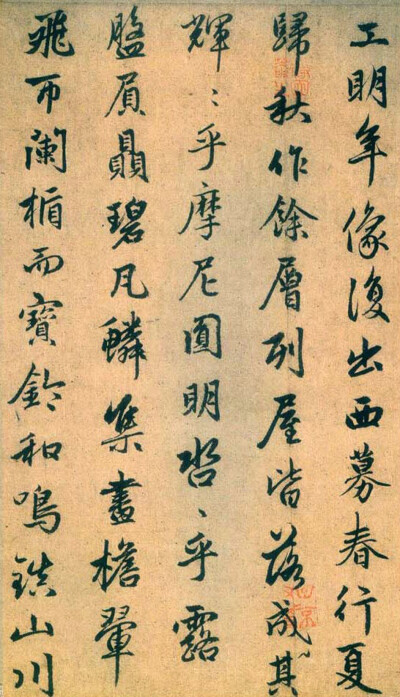 工明年像復出西募春行夏
歸秋作餘層列屋皆落成其
輝〻乎摩尼圓明岧〻乎露
盤屓贔碧瓦鱗集畫檐翬
飛帀蘭楯而寶鈴和鳴鎮山川